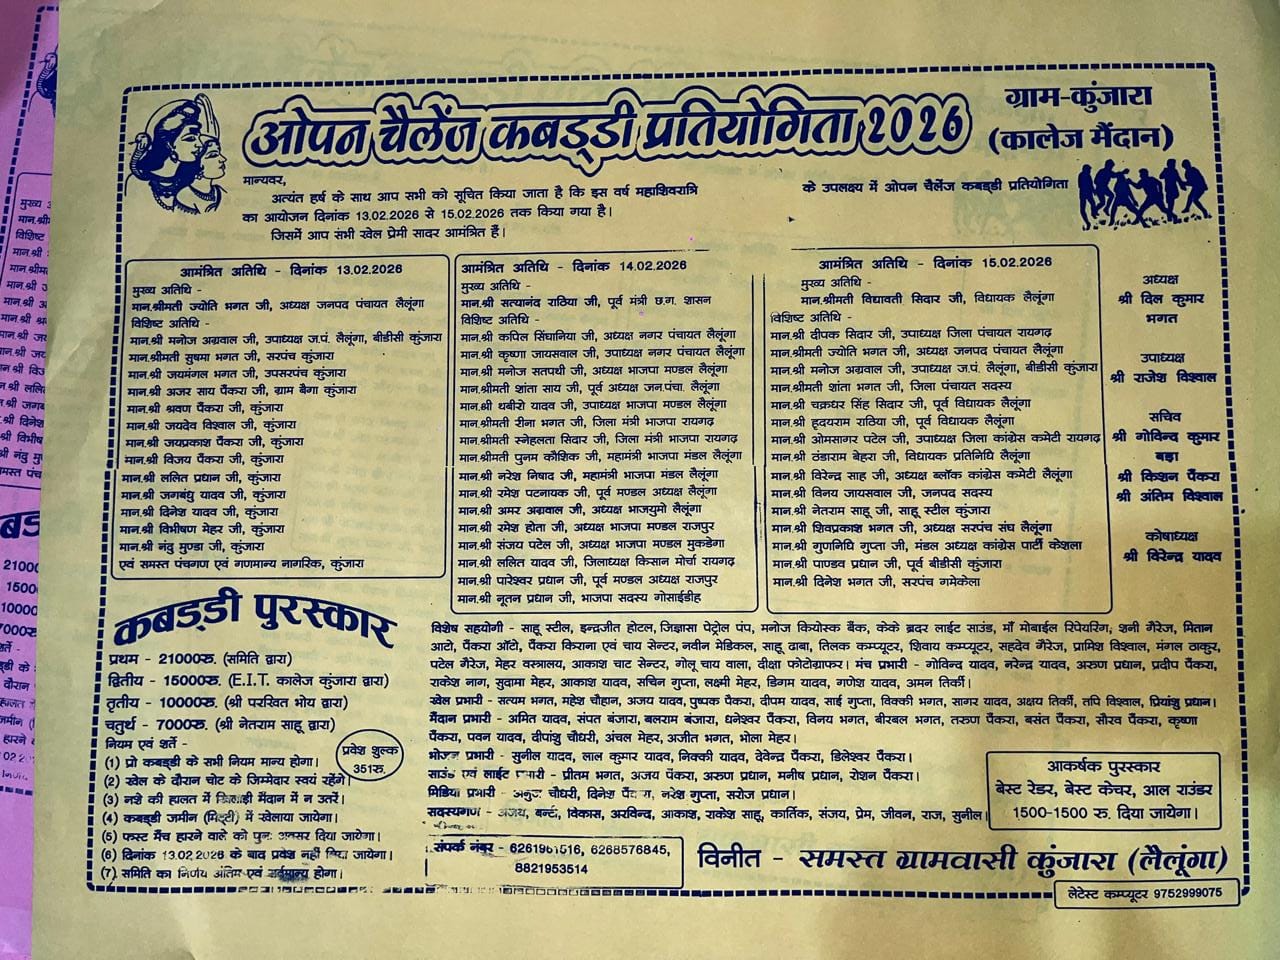 ओपन चैलेंज कबड्डी प्रतियोगिता 2026
ग्राम-कुंजारा
(कालेज मैंदान)
मान्यवर,
अत्यंत हर्ष के साथ आप सभी को सूचित किया जाता है कि इस वर्ष महाशिवरात्रि के उपलक्ष्य में ओपन चैलेंज कबड्डी प्रतियोगिता
का आयोजन दिनांक 13.02.2026 से 15.02.2026 तक किया गया है।
जिसमें आप सभी खेल प्रेमी सादर आमंत्रित हैं।
आमंत्रित अतिथि - दिनांक 13.02.2026
मुख्य अतिथि -
मान.श्रीमती ज्योति भगत जी, अध्यक्ष जनपद पंचायत लैलूंगा
विशिष्ट अतिथि -
मान.श्री मनोज अग्रवाल जी, उपाध्यक्ष ज.पं. लैलूंगा, बीडीसी कुंजारा
मान.श्रीमती सुषमा भगत जी, सरपंच कुंजारा
मान.श्री जयमंगल भगत जी, उपसरपंच कुंजारा
मान.श्री अजर साय पैंकरा जी, ग्राम बैगा कुंजारा
मान.श्री श्रवण पैंकरा जी, कुंजारा
मान.श्री जयदेव विश्वाल जी, कुंजारा
मान.श्री जयप्रकाश पैंकरा जी, कुंजारा
मान.श्री विजय पैंकरा जी, कुंजारा
मान.श्री ललित प्रधान जी, कुंजारा
मान.श्री जगबंधु यादव जी, कुंजारा
मान.श्री दिनेश यादव जी, कुंजारा
मान.श्री विभीषण मेहर जी, कुंजारा
मान.श्री नंदु मुण्डा जी, कुंजारा
एवं समस्त पंचगण एवं गणमान्य नागरिक, कुंजारा
आमंत्रित अतिथि - दिनांक 14.02.2026
मुख्य अतिथि -
मान.श्री सत्यानंद राठिया जी, पूर्व मंत्री छ.ग. शासन
विशिष्ट अतिथि -
मान.श्री कपिल सिंघानिया जी, अध्यक्ष नगर पंचायत लैलूंगा
मान.श्री कृष्णा जायसवाल जी, उपाध्यक्ष नगर पंचायत लैलूंगा
मान.श्री मनोज सतपथी जी, अध्यक्ष भाजपा मण्डल लैलूंगा
मान.श्रीमती शांता साय जी, पूर्व अध्यक्ष जन.पंचा. लैलूंगा
मान.श्री थबीरो यादव जी, उपाध्यक्ष भाजपा मण्डल लैलूंगा
मान.श्रीमती रीना भगत जी, जिला मंत्री भाजपा रायगढ़
मान.श्रीमती स्नेहलता सिदार जी, जिला मंत्री भाजपा रायगढ़
मान.श्रीमती पुनम कौशिक जी, महामंत्री भाजपा मंडल लैलूंगा
मान.श्री नरेश निषाद जी, महामंत्री भाजपा मण्डल लैलूंगा
मान.श्री रमेश पटनायक जी, पूर्व मण्डल अध्यक्ष लैलूंगा
मान.श्री अमर अग्रवाल जी, अध्यक्ष भाजयुमो लैलूंगा
मान.श्री रमेश होता जी, अध्यक्ष भाजपा मण्डल राजपुर
मान.श्री संजय पटेल जी, अध्यक्ष भाजपा मण्डल मुकडेगा
मान.श्री ललित यादव जी, जिलाध्यक्ष किसान मोर्चा रायगढ़
मान.श्री पारेश्वर प्रधान जी, पूर्व मण्डल अध्यक्ष राजपुर
मान.श्री नूतन प्रधान जी, भाजपा सदस्य गोसाईडीह
आमंत्रित अतिथि - दिनांक 15.02.2026
मुख्य अतिथि -
मान.श्रीमती विद्यावती सिदार जी, विधायक लैलूंगा
विशिष्ट अतिथि -
मान.श्री दीपक सिदार जी, उपाध्यक्ष जिला पंचायत रायगढ़
मान.श्रीमती ज्योति भगत जी, अध्यक्ष जनपद पंचायत लैलूंगा
मान.श्री मनोज अग्रवाल जी, उपाध्यक्ष ज.पं. लैलूंगा, बीडीसी कुंजारा
मान.श्रीमती शांता भगत जी, जिला पंचायत सदस्य
मान.श्री चक्रधर सिंह सिदार जी, पूर्व विधायक लैलूंगा
मान.श्री हृदयराम राठिया जी, पूर्व विधायक लैलूंगा
मान.श्री ओमसागर पटेल जी, उपाध्यक्ष जिला कांग्रेस कमेटी रायगढ़
मान.श्री ठंडाराम बेहरा जी, विधायक प्रतिनिधि लैलूंगा
मान.श्री विरेन्द्र साह जी, अध्यक्ष ब्लॉक कांग्रेस कमेटी लैलूंगा
मान.श्री विनय जायसवाल जी, जनपद सदस्य
मान.श्री नेतराम साहू जी, साहू स्टील कुंजारा
मान.श्री शिवप्रकाश भगत जी, अध्यक्ष सरपंच संघ लैलूंगा
मान.श्री गुणनिधि गुप्ता जी, मंडल अध्यक्ष कांग्रेस पार्टी केशला
मान.श्री पाण्डव प्रधान जी, पूर्व बीडीसी कुंजारा
मान.श्री दिनेश भगत जी, सरपंच गमेकेला
अध्यक्ष
श्री दिल कुमार
भगत
उपाध्यक्ष
श्री राजेश विश्वाल
सचिव
श्री गोविन्द कुमार
बड़ा
श्री किशन पैंकरा
श्री अंतिम विश्वाल
कोषाध्यक्ष
श्री विरेन्द्र यादव
कबड्डी पुरस्कार
प्रथम - 21000रु. (समिति द्वारा)
द्वितीय - 15000रु. (E.I.T. कालेज कुंजारा द्वारा)
तृतीय - 10000रु. (श्री परखित भोय द्वारा)
चतुर्थ - 7000रु. (श्री नेतराम साहू द्वारा)
नियम एवं शर्ते -
(1) प्रो कबड्डी के सभी नियम मान्य होगा।
(2) खेल के दौरान चोट के जिम्मेदार स्वयं रहेंगे।
(3) नशे की हालत में खिलाड़ी मैदान में न उतरें।
(4) कबड्डी जमीन (मिट्टी) में खेलाया जायेगा।
(5) फस्ट मैंच हारने वाले को पुनः अवसर दिया जायेगा।
(6) दिनांक 13.02.2026 के बाद प्रवेश नहीं दिया जायेगा।
(7) समिति का निर्णय अंतिम एवं सर्वमान्य होगा।
प्रवेश शुल्क
351रु.
विशेष सहयोगी - साहू स्टील, इन्द्रजीत होटल, जिज्ञासा पेट्रोल पंप, मनोज कियोस्क बैंक, केके ब्रदर लाईट साउंड, माँ मोबाईल रिपेयरिंग, शनी गैरेज, मितान
आटो, पैंकरा ऑटो, पैंकरा किराना एवं चाय सेन्टर, नवीन मेडिकल, साहू ढाबा, तिलक कम्प्यूटर, शिवाय कम्प्यूटर, सहदेव गैरेज, प्रामिश विश्वाल, मंगल ठाकुर,
पटेल गैरेज, मेहर वस्त्रालय, आकाश चाट सेन्टर, गोलू चाय वाला, दीक्षा फोटोग्राफर। मंच प्रभारी - गोविन्द यादव, नरेन्द्र यादव, अरुण प्रधान, प्रदीप पैंकरा,
राकेश नाग, सुदामा मेहर, आकाश यादव, सचिन गुप्ता, लक्ष्मी मेहर, डिगम यादव, गणेश यादव, अमन तिर्की।
खेल प्रभारी - सत्यम भगत, महेश चौहान, अजय यादव, पुष्पक पैकरा, दीपम यादव, साई गुप्ता, विक्की भगत, सागर यादव, अक्षय तिर्की, तपि विश्वाल, प्रियांशु प्रधान।
मैंदान प्रभारी - अमित यादव, संपत बंजारा, बलराम बंजारा, धनेश्वर पैंकरा, विनय भगत, बीरबल भगत, तरुण पैंकरा, बसंत पैंकरा, सौरव पैंकरा, कृष्णा
पैंकरा, पवन यादव, दीपांशु चौधरी, अंचल मेहर, अजीत भगत, भोला मेहर।
भोजन प्रभारी - सुनील यादव, लाल कुमार यादव, निक्की यादव, देवेन्द्र पैंकरा, डिलेश्वर पैंकरा।
साउंड एवं लाईट प्रभारी - प्रीतम भगत, अजय पैंकरा, अरुण प्रधान, मनीष प्रधान, रोशन पैंकरा।
मिडिया प्रभारी - अनुज चौधरी, दिनेश पैंकरा, नरेश गुप्ता, सरोज प्रधान।
सदस्यगण - अजय, बन्टी, विकास, अरविन्द, आकाश, राकेश साहू, कार्तिक, संजय, प्रेम, जीवन, राज, सुनील।
आकर्षक पुरस्कार
बेस्ट रेडर, बेस्ट केचर, आल राउंडर
1500-1500 रु. दिया जायेगा।
संपर्क नंबर - 6261961516, 6268576845,
8821953514
विनीत - समस्त ग्रामवासी कुंजारा (लैलूंगा)
लेटेस्ट कम्प्यूटर 9752999075